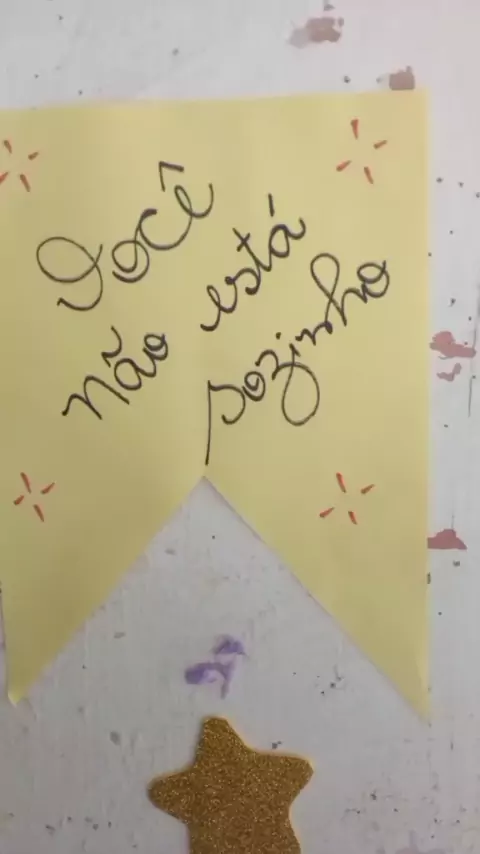 Você
não está
sozinho